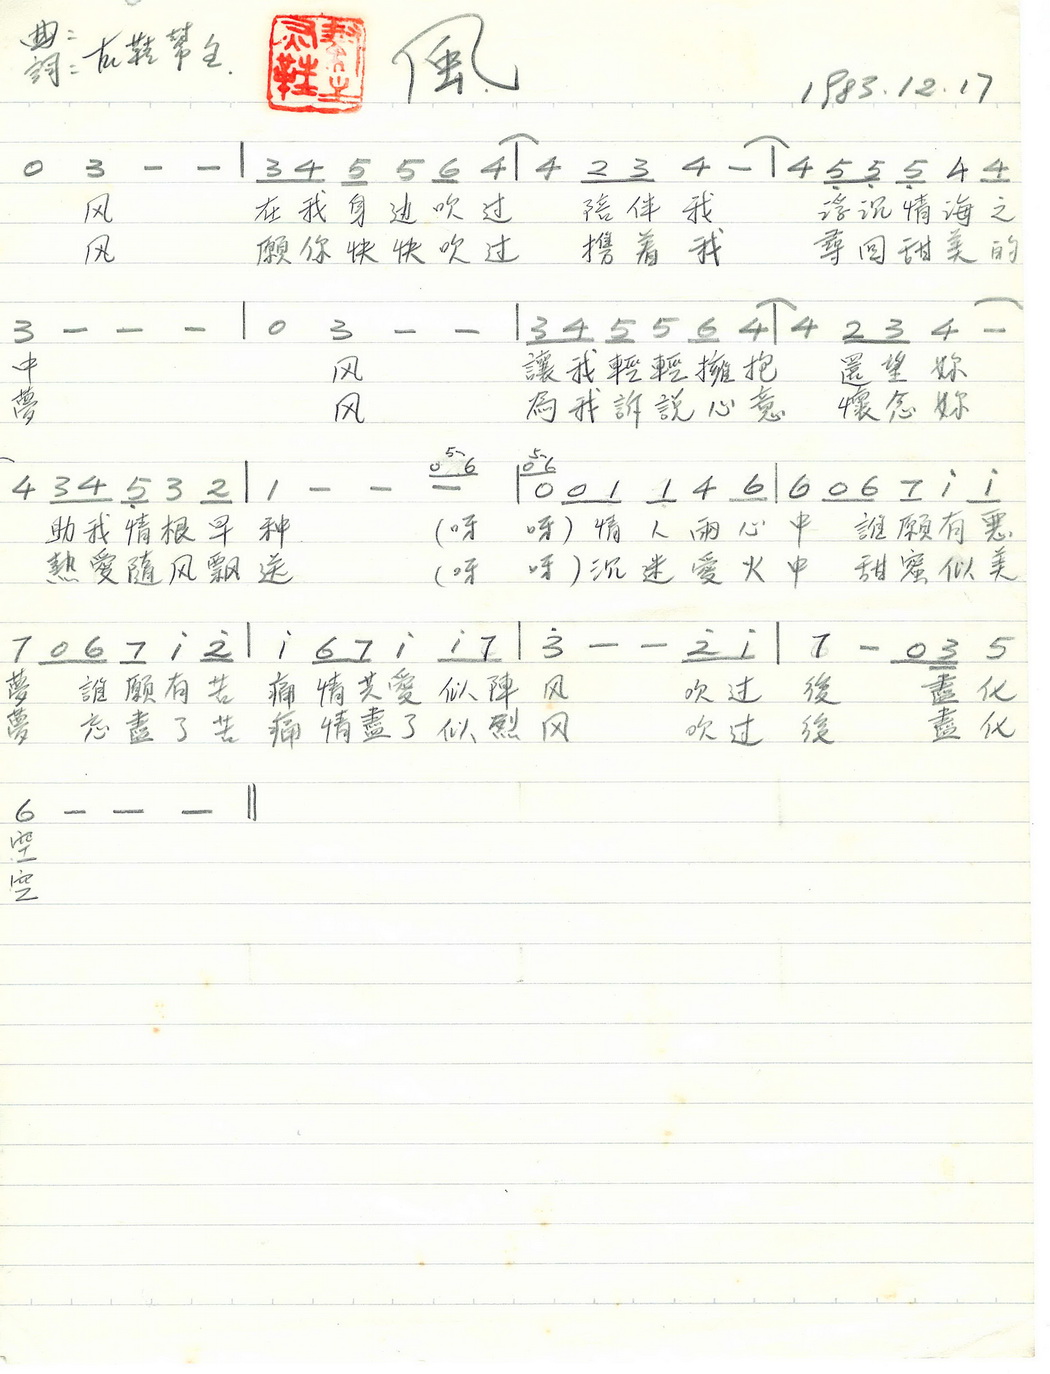 曲：
詞：右鞋幫主.
風
1983.12.17
0 3 - - | 3 4 5 5 6 4 | 4 2 3 4 - | 4 5 5 5 4 4
风 在我身边吹过 陪伴我 浮沉情海之
风 願你快快吹过 携着我 尋回甜美的
3 - - - | 0 3 - - | 3 4 5 5 6 4 | 4 2 3 4 -
中 风 讓我輕輕擁抱 還望妳
夢 风 為我訴説心意 懷念妳
5 5
0 6 0 6
4 3 4 5 3 2 | 1 - - - | 0 0 1 1 4 6 | 6 0 6 7 i i
助我情根早种 (呀 呀) 情人兩心中 誰願有惡
熱愛隨风飘送 (呀 呀) 沉迷愛火中 甜蜜似美
7 0 6 7 i 2 | i 6 7 i i 7 | 3 - - 2 i | 7 - 0 3 5
夢 誰願有苦 痛情共愛似陣风 吹过後 盡化
夢 忘盡了苦 痛情盡了似烈风 吹过後 盡化
6 - - - ||
空
空